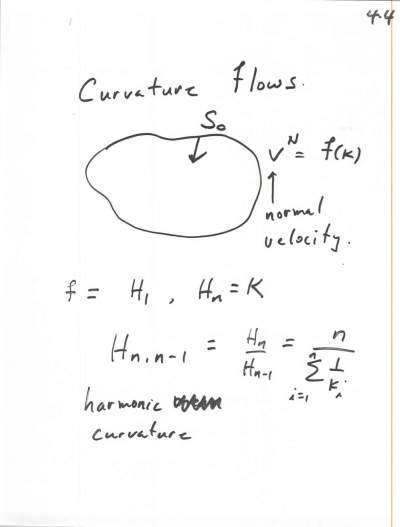 4.4
Curvature flows.
S₀
vᴺ = f(κ)
normal
velocity.
f = H₁ , Hₙ = K
Hₙ,ₙ₋₁ = Hₙ/Hₙ₋₁ = n / ∑ᵢ₌₁ⁿ 1/κᵢ
harmonic
curvature